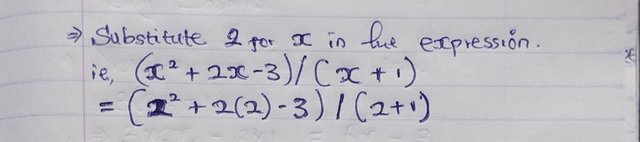 ⇒ Substitute 2 for x in the expression.
ie, (x² + 2x - 3)/(x + 1)
= (2² + 2(2) - 3) / (2+1)